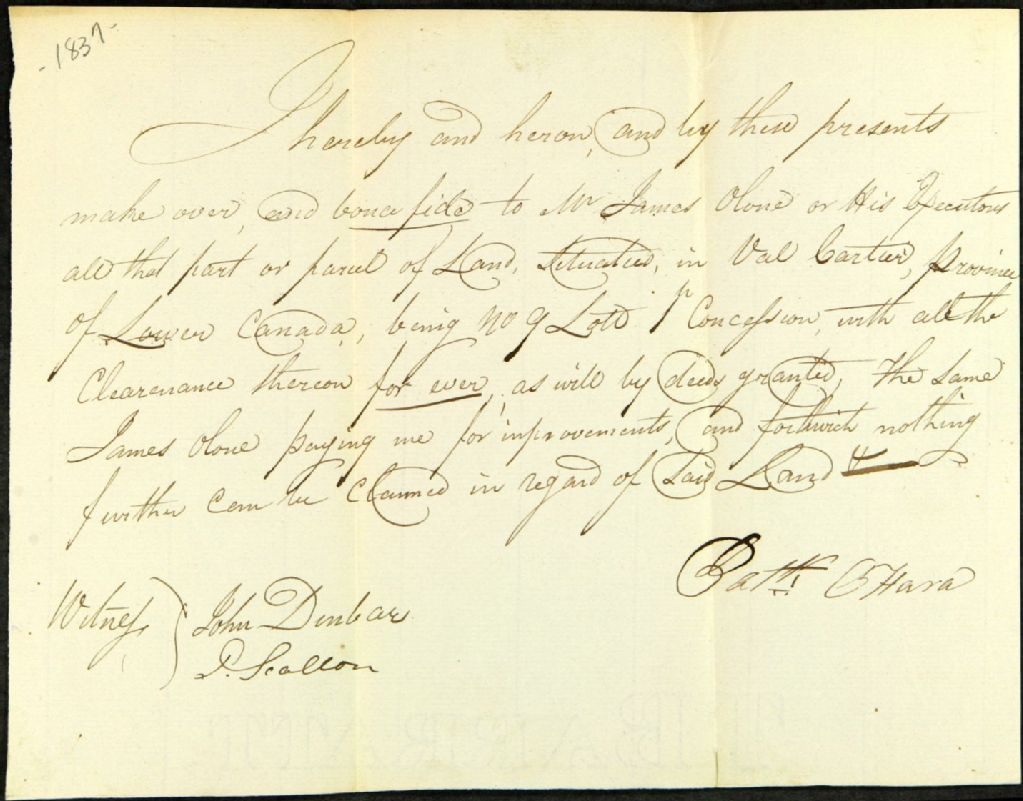 - 1837 -
I hereby and heron, and by these presents
make over, and bona fide to Mr James Olone or His Executors
all that part or parcel of Land, Situated, in Val Cartier, Province
of Lower Canada, being No 9 Lott 1st Concession, with all the
Clearenance thereon for ever, as will by deeds granted, The Same
James Olone paying me for improvements, and forthwith nothing
further can be Claimed in regard of Said Land
Patk. O Hara
Witness John Dunbar
P. Scallon